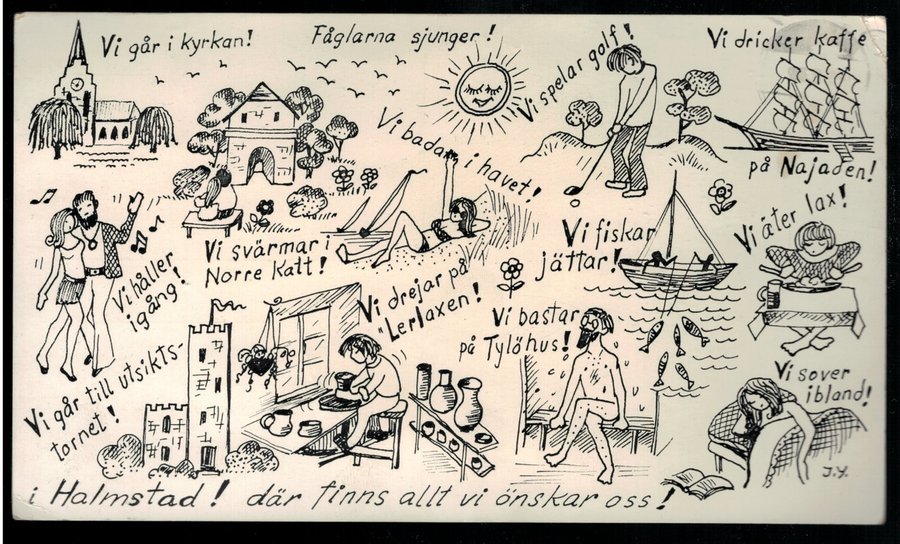 Vi går i kyrkan!
Fåglarna sjunger!
Vi spelar golf!
Vi dricker kaffe
på Najaden!
Vi badar i havet!
Vi svärmar i
Norre Katt!
Vi håller
igång!
Vi fiskar
jättar!
Vi äter lax!
Vi drejar på
"Lerlaxen!
Vi bastar
på Tylöhus!
Vi går till utsikts-
tornet!
Vi sover
ibland!
J.Y.
i Halmstad! där finns allt vi önskar oss!